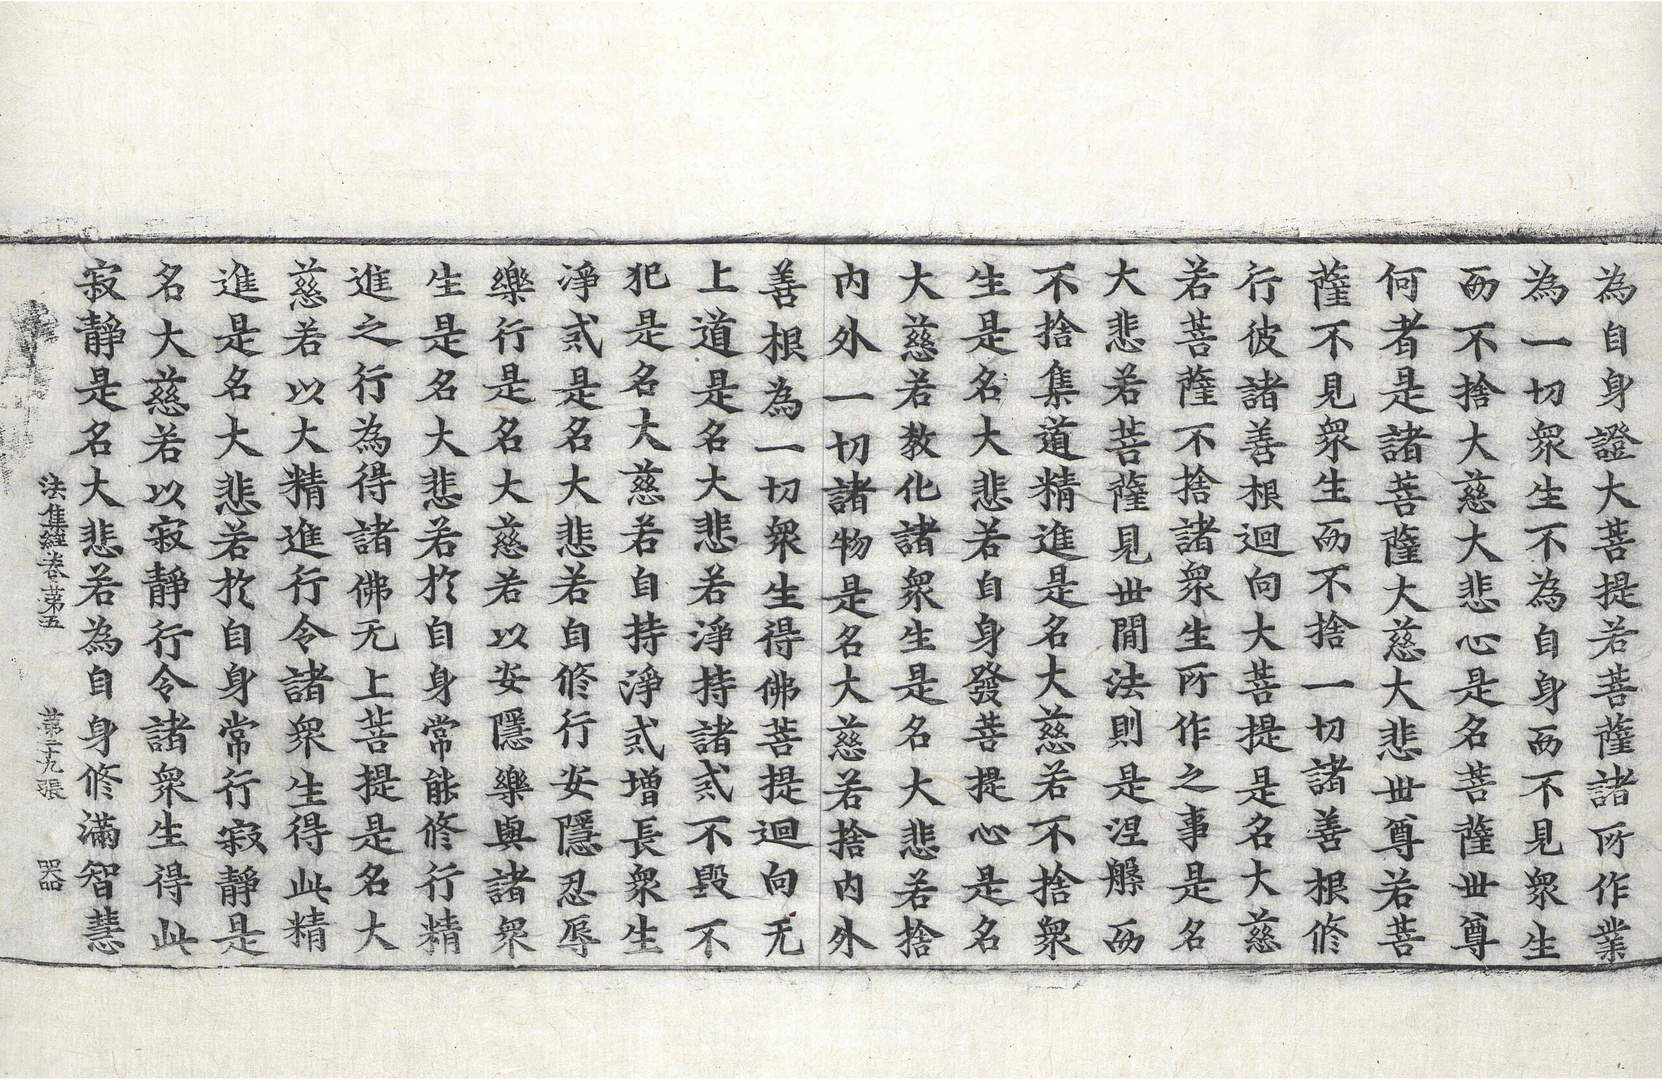 為自身證大菩提若菩薩諸所作業
為一切衆生不為自身而不見衆生
而不捨大慈大悲心是名菩薩世尊
何者是諸菩薩大慈大悲世尊若菩
薩不見衆生而不捨一切諸善根修
行彼諸善根迴向大菩提是名大慈
若菩薩不捨諸衆生所作之事是名
大悲若菩薩見世閒法則是涅槃而
不捨集道精進是名大慈若不捨衆
生是名大悲若自身發菩提心是名
大慈若教化諸衆生是名大悲若捨
内外一切諸物是名大慈若捨内外
善根為一切衆生得佛菩提迴向无
上道是名大悲若淨持諸戒不毀不
犯是名大慈若自持淨戒增長衆生
淨戒是名大悲若自修行安隱忍辱
樂行是名大慈若以安隱樂與諸衆
生是名大悲若於自身常能修行精
進之行為得諸佛无上菩提是名大
慈若以大精進行令諸衆生得此精
進是名大悲若於自身常行寂靜是
名大慈若以寂靜行令諸衆生得此
寂靜是名大悲若為自身修滿智慧
法集經卷第五 第二十九張 器